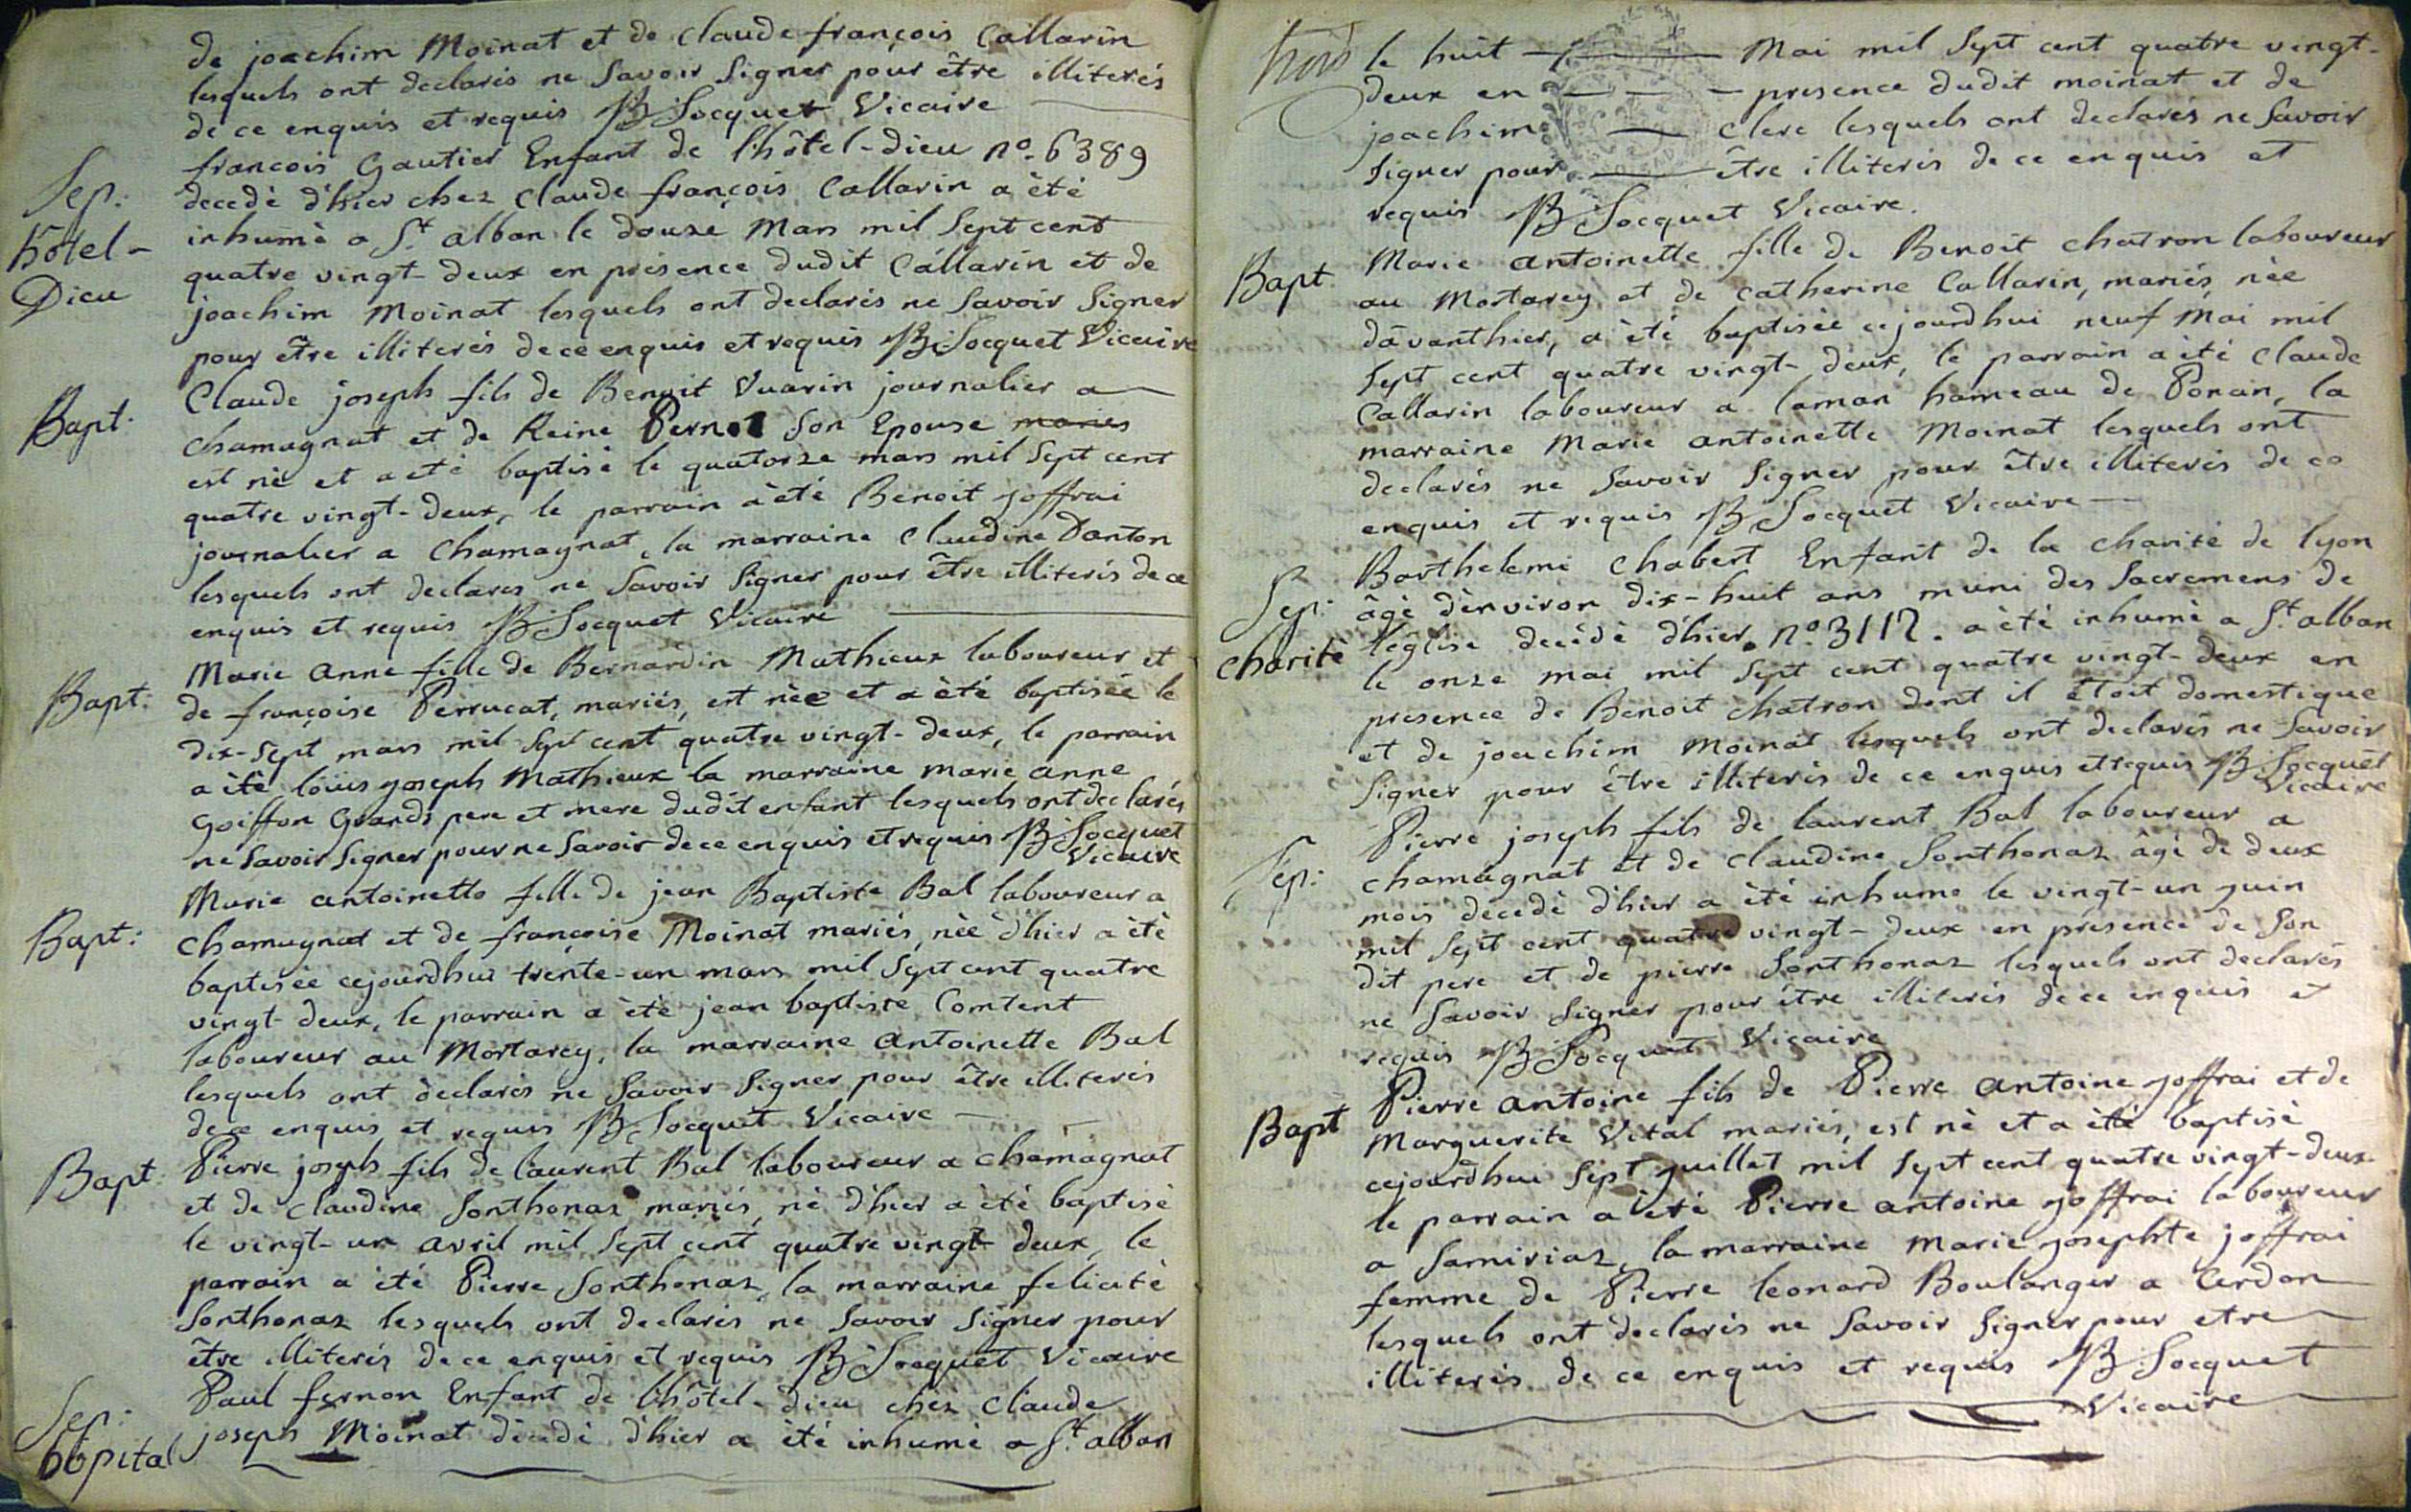 de joachim Moinat et de Claude françois Callarin
lesquels ont declarés ne Savoir Signer pour être illiterés
de ce enquis et requis B Socquet Vicaire
Sep:
hôtel-
Dieu
francois Gautier Enfant de l'hôtel-dieu no. 6389
decedè d'hier chez Claude françois Callarin a èté
inhumè a St. alban le douze Mars mil Sept cent
quatre vingt-deux en présence dudit Callarin et de
joachim Moinat lesquels ont declarés ne Savoir Signer
pour être illiterés de ce enquis et requis B Socquet Vicaire
Bapt.
Claude joseph fils de Benoit Vuarin journalier a
chamagnat et de Reine Pernot Son Epouse maries
est nè et a eté baptisé le quatorze mars mil Sept cent
quatre vingt-deux, le parrain a èté Benoit joffrai
journalier a Chamagnat, la marraine Claudine Danton
lesquels ont declarés ne Savoir Signer pour être illiterés de ce
enquis et requis B Socquet Vicaire
Bapt:
Marie Anne fille de Bernardin Mathieux laboureur et
de françoise Perrucat, mariés, est nèe et a èté baptisée le
dix-Sept mars mil Sept cent quatre vingt-deux, le parrain
a èté loüis joseph Mathieux la marraine marie anne
Goiffon Grands pere et mere dudit enfant lesquels ont declarés
ne Savoir Signer pour ne Savoir de ce enquis et requis B Socquet
Vicaire
Bapt:
Marie antoinette fille de jean Baptiste Bal laboureur a
chamagnat et de françoise Moinat mariés, nèè d'hier a èté
baptisèe cejourdhui trente-un mars mil Sept cent quatre
vingt-deux, le parrain a èté jean baptiste Content
laboureur au Mortarey, la marraine antoinette Bal
lesquels ont declarés ne Savoir Signer pour être illiterés
de ce enquis et requis B Socquet Vicaire
Bapt:
Pierre joseph fils de laurent Bal laboureur a chamagnat
et de claudine Sonthonaz mariés, nè d'hier a èté baptisé
le vingt-un avril mil Sept cent quatre vingt deux, le
parrain a èté Pierre Sonthonaz, la marraine felicité
Sonthonaz lesquels ont declarés ne Savoir Signer pour
être illiterés de ce enquis et requis B Socquet Vicaire
Sep:
hôpital
Paul fernon Enfant de l'hôtel-dieu chez Claude
joseph Moinat dècèdè d'hier a èté inhumè a St. alban
le huit Mai mil Sept cent quatre vingt-
deux en presence dudit moinat et de
joachim clerc lesquels ont declarés ne Savoir
Signer pour être illiterés de ce enquis et
requis B Socquet Vicaire.
Bapt.
Marie antoinette fille de Benoit chatron laboureur
au Mortarey et de catherine Callarin, mariés, nèe
d'avanthier, a èté baptisèe cejourdhui neuf Mai mil
Sept cent quatre vingt-deux, le parrain a èté Claude
Callarin laboureur a laman hameau de Ponan, la
marraine Marie antoinette Moinat lesquels ont
declarés ne Savoir Signer pour être illiterés de ce
enquis et requis B Socquet Vicaire
Sep:
charitè
Barthelemi Chabert Enfant de la charité de lyon
âgè d'environ dix-huit ans muni des Sacremens de
l'église decèdè d'hier, no. 3112. a èté inhumè a St. alban
le onze mai mil Sept cent quatre vingt-deux en
presence de Benoit chatron dont il ètoit domestique
et de joachim Moinat lesquels ont declarés ne Savoir
Signer pour être illiterés de ce enquis et requis B Socquet
Vicaire
Sep:
Pierre joseph fils de laurent Bal laboureur a
chamagnat et de claudine Sonthonaz âgè de deux
mois decedè d'hier a èté inhumé le vingt-un juin
mil Sept cent quatre vingt-deux en présence de Son
dit pere et de pierre Sonthonaz lesquels ont declarés
ne Savoir Signer pour être illiterés de ce enquis et
requis B Socquet Vicaire
Bapt
Pierre antoine fils de Pierre antoine joffrai et de
Marguerite Vital mariés, est nè et a èté baptisè
cejourdhui Sept juillet mil Sept cent quatre vingt-deux
le parrain a èté Pierre antoine joffrai laboureur
a Samiriaz, la marraine Marie josephte joffrai
femme de Pierre leonard Boulanger a Cerdon
lesquels ont declarés ne Savoir Signer pour etre
illiterés de ce enquis et requis B Socquet
Vicaire